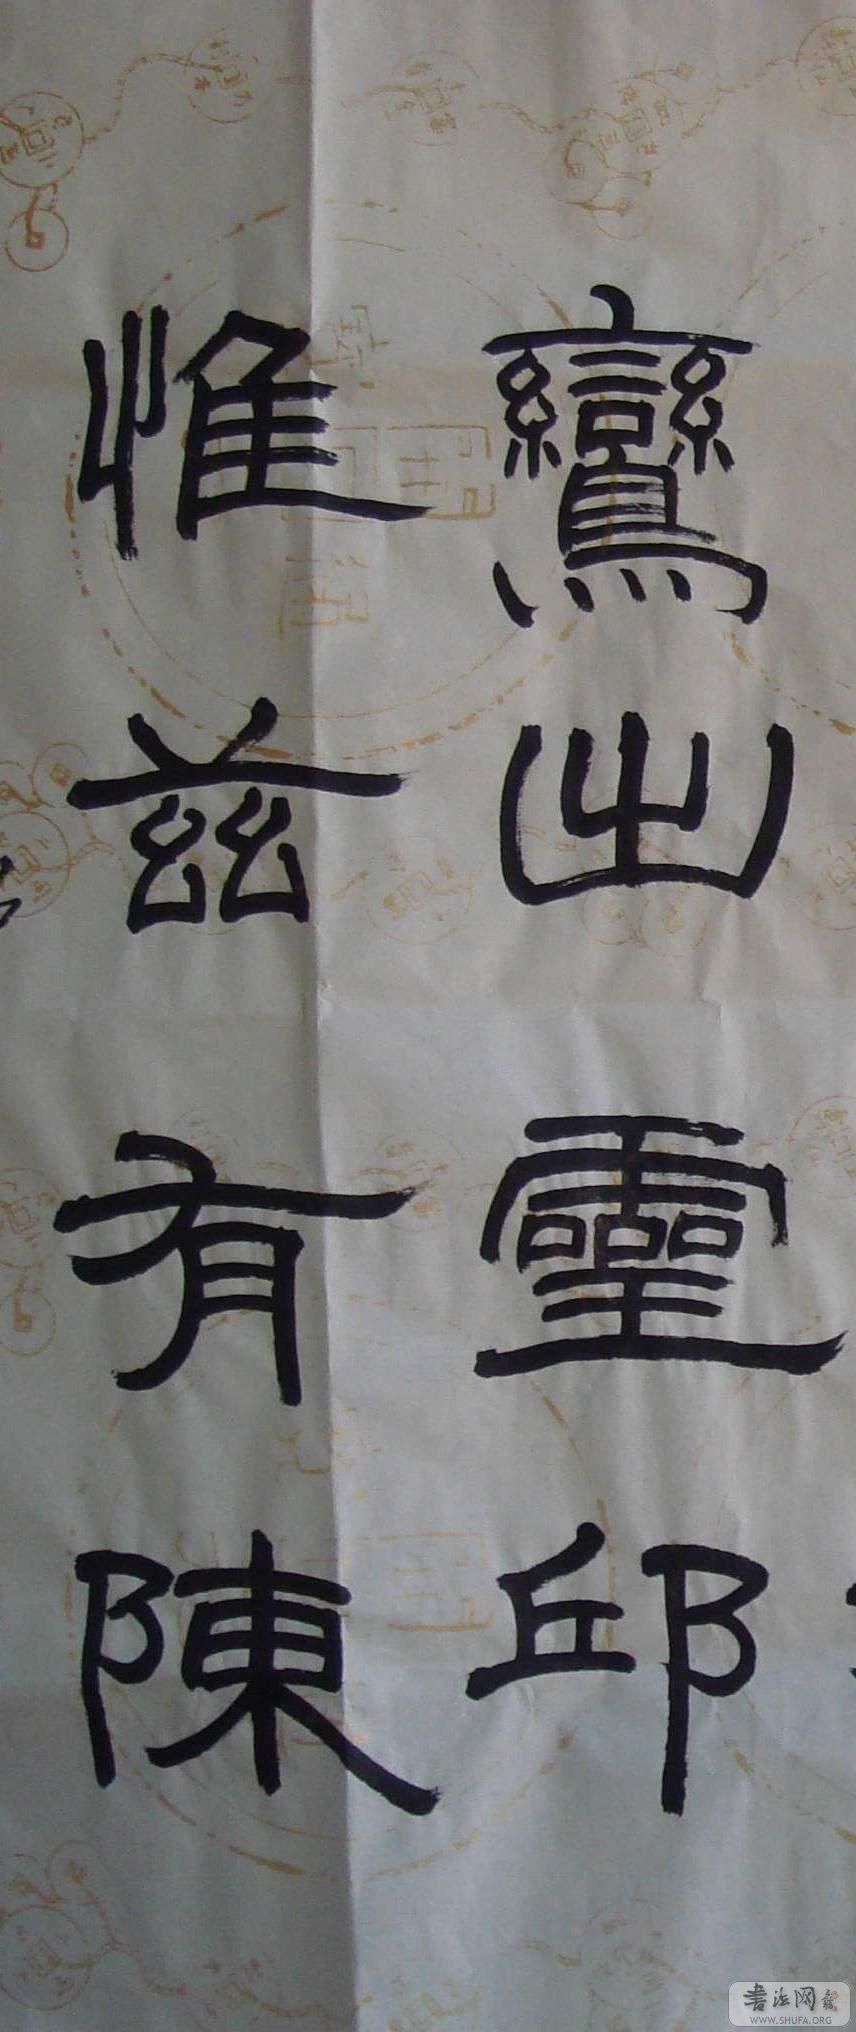 鸞出靈邱
惟茲有陳
書法网
WWW.SHUFA.ORG